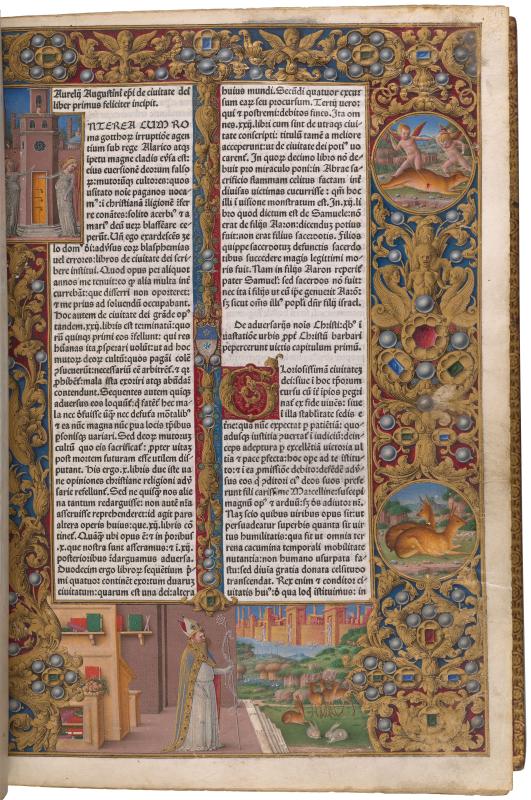 Aurelij Augustini ep̄i de ciuitate dei
liber primus feliciter incipit.
NTEREA CUM RO
ma gothoꝝ irruptiōe agen
tium sub rege Alarico atqꝫ
īpetu magne cladis eūsa est:
eius euersionē deorum falso
rꝫ: mutorūqꝫ cultores: quos
usitato noīe paganos uoca
mꝰ: ī christianā īligionē īfer
re conātes: solito acerbiꝰ ⁊ a
marꝰ deū ueꝝ blasfēare ce
perūt. Un̄ ego exardescēs ze
lo domꝰ di: aduersus eoꝝ blasphemias
uel errores: libros de ciuitate dei scri
bere institui. Quod opus per aliquot
annos me tenuit: eo ꝙ alia multa in
currebāt: que differri non oporteret:
⁊ me prius ad soluendū occupabant.
Hoc autem de ciuitate dei grāde opꝰ
tandem .xxij. libris est terminatū: quo
rū quinqꝫ primi eos refellunt: qui res
hūanas ita ꝓsperari uolūt: ut ad hoc
multoꝝ deoꝝ cultū: quos pagāi cole
re
ꝓhibēt: mala ista exoriri atqꝫ abūdar̄
contendunt. Sequentes autem quiqꝫ
aduersus eos loquūt̄: ꝗ fatēt̄ hec ma
la nec defuisse unqꝫ: nec defutura mortalibꝰ
⁊ ea nūc magna nūc ꝑua locis tꝑibus
ꝑsonisqꝫ uariari. Sed deoꝝ multoꝝ
cultū quo eis sacrificat̄: ꝓpter uitaꝫ
post mortem futuram esse utilem dis
putant. His ergo .x. libris due iste ua
ne opiniones christiane religioni adu
sarie refellunt̄. Sed ne quisqꝫ nos alie
na tantum redarguisse: non aut̄ nr̄a
asseruisse reprehenderet: id agit pars
altera operis huius: que .xij. libris cō
tinet̄. Quāqꝫ ubi opus ē: ⁊ in pōribus
.x. que nostra sunt asseramus: ⁊ ī .xij.
posterioribus redarguamus aduersa.
Duodecim ergo libroꝝ sequētium ꝑ
mi quatuor continēt exortum duaꝝ
ciuitatum: quarum est una dei: altera
huius mundi. Secūdi quatuor excur
sum eaꝝ seu procursum. Tertij uero:
qui ⁊ postremi: debitos fines. Ita om
nes .xxij. libri cum sint de utraqꝫ ciui
tate conscripti: titulū tamē a meliore
acceperunt: ut de ciuitate dei potiꝰ uo
carent̄. In quorꝫ decimo libro nō de
buit pro miraculo poni: in Abrae sa
crificio flammam celitus factam int̄
diuisas uictimas cucurrisse: qm̄ hoc
illi ī uisione monstratum est. In .xij. li
bro quod dictum est de Samuele: nō
erat de filijs Aaron: dicendū potius
fuit: non erat filius sacerdotis. Filios
quippe sacerdotuꝫ defunctis sacerdo
tibus succedere magis legitimi mo
ris fuit. Nam in filijs Aaron reperit̄
pater Samuel: sed sacerdos nō fuit:
nec ita ī filijs ut eū ip̄e genuerit Aarō:
sꝫ sicut om̄s illiꝰ popli dn̄r filij israel.
De aduersarijs noīs Christi: qbꝰ ī
uastatiōe urbis ꝓpt̄ Christū barbari
pepercerunt uictis capitulum primū.
Gloriosissimā ciuitateꝫ
dei: siue ī hoc tꝑorum
cursu cū īt̄ īpios pegri
nat̄ ex fide uiuēs: siue
ī illa stabilitate sedis e
terne: quā nūc expectat ꝑ patiētiā: quo
adusqꝫ iustitia ꝯuertat̄ ī iudiciū: dein
ceps adeptura ꝑ excellētiā uictoria ul
tia ⁊ pace ꝑfecta: hoc ope ad te īstitu
to: ⁊ ī ea ꝓmissiōe debito: defēdē aduꝰ
sus eos ꝗ ꝯditori eiꝰ deos suos prefe
runt: fili carissime Marcelline: suscepi
magnū opꝰ ⁊ arduū: sꝫ dꝰ adiutor nr̄.
Nam scio quibus uiribus opus sit: ut
persuadeatur superbis quanta sit uir
tus humilitatis: qua fit ut omnia ter
rena cacumina temporali mobilitate
nutantia: non humano usurpata fa
stu: sed diuia gratia donata celsitudo
transcendat. Rex enim ⁊ conditor ci
uitatis huiꝰ: ð qua loqͥ īstituimus: in